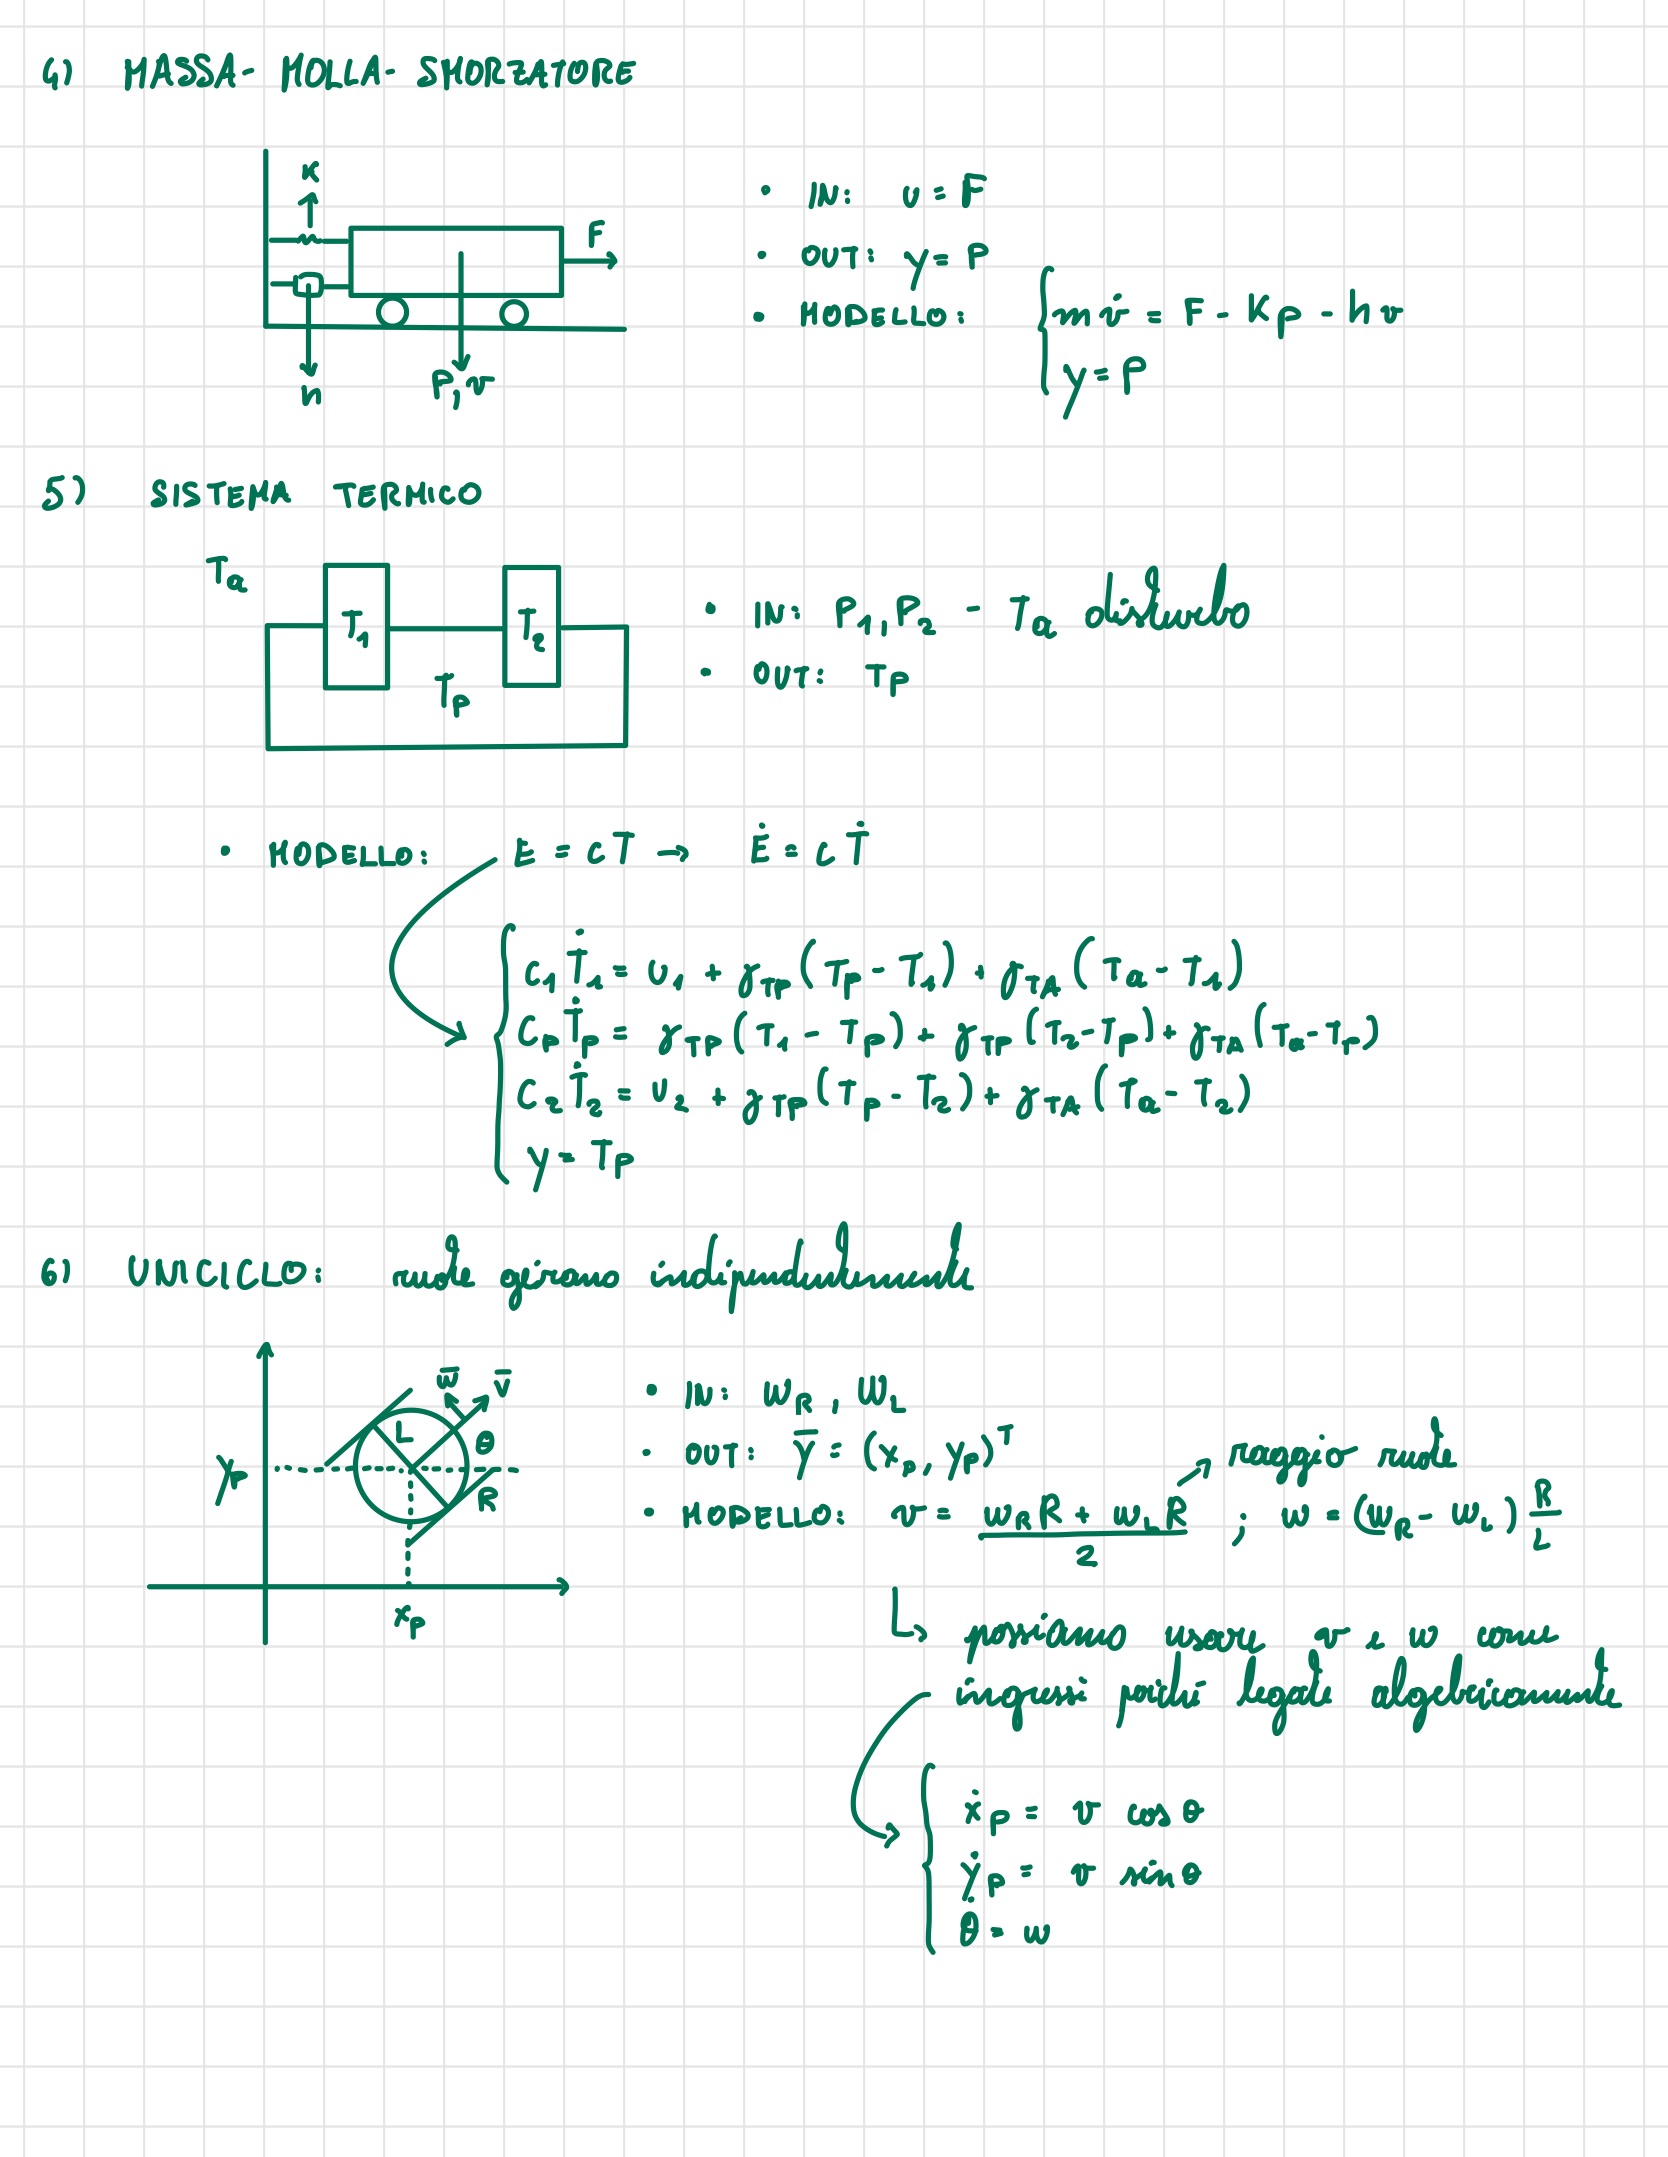 4) MASSA- MOLLA- SMORZATORE
K
F
h
P, v
• IN: u = F
• OUT: y = P
• MODELLO: { m v̇ = F - Kp - h v
y = P
5) SISTEMA TERMICO
Ta
T1
T2
Tp
• IN: P1, P2 - Ta disturbo
• OUT: Tp
• MODELLO: E = cT → Ė = cṪ
C1 Ṫ1 = u1 + γTP (Tp - T1) + γTA (Ta - T1)
CP Ṫp = γTP (T1 - Tp) + γTP (T2 - Tp) + γTA (Ta - Tp)
C2 Ṫ2 = u2 + γTP (Tp - T2) + γTA (Ta - T2)
y = Tp
6) UNICICLO: ruote girano indipendentemente
w̄ v̄
L
θ
yp
R
xp
• IN: WR, WL
• OUT: Ȳ = (xp, yp)^T
raggio ruote
• MODELLO: v = (wR R + wL R)/2 ; w = (wR - wL) R/L
↳ possiamo usare v e w come
ingressi poichè legate algebricamente
ẋp = v cos θ
ẏp = v sin θ
θ̇ = w